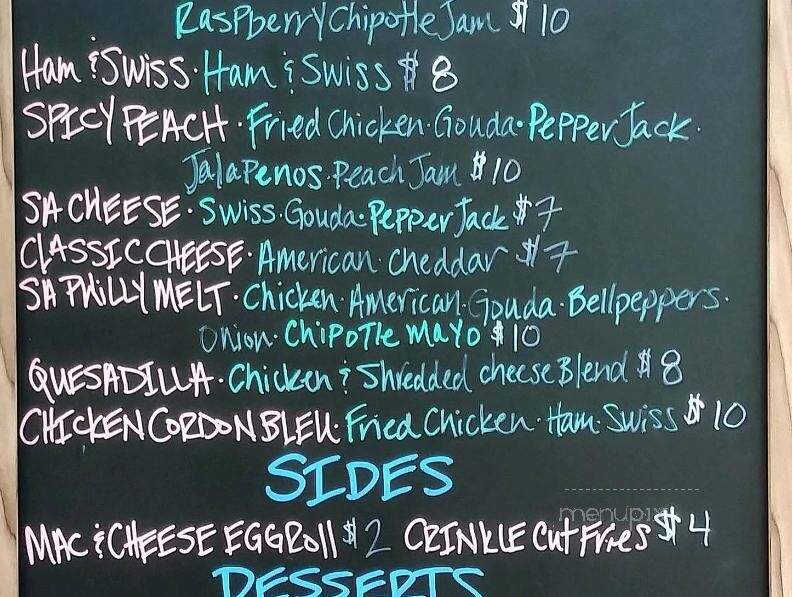 Raspberry Chipotle Jam $10
Ham & Swiss · Ham & Swiss $8
SPICY PEACH · Fried Chicken · Gouda · Pepper Jack ·
Jalapenos · Peach Jam $10
SA CHEESE · Swiss · Gouda · Pepper Jack $7
CLASSIC CHEESE · American · cheddar $7
SA PHILLY MELT · Chicken · American · Gouda · Bellpeppers ·
Onion · Chipotle Mayo $10
QUESADILLA · Chicken & Shredded cheese Blend $8
CHICKEN CORDON BLEU · Fried Chicken · Ham · Swiss $10
SIDES
menupix
MAC & CHEESE EGGROll $2 CRINKLE Cut Fries $4
DESSERTS